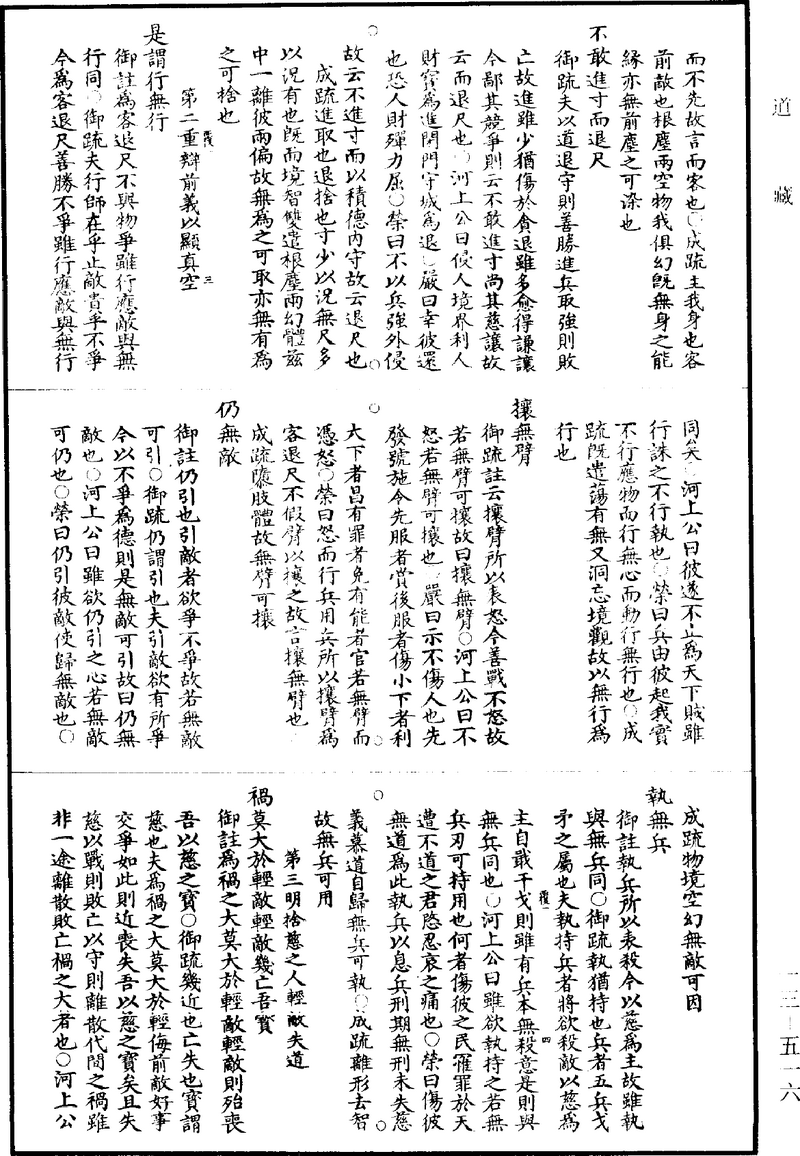 道藏
一三—五一六
而不先故言而客也○成疏主我身也客
前敵也根塵兩空物我俱幻既無身之能
緣亦無前塵之可染也
不敢進寸而退尺
御疏夫以道退守則善勝進兵取強則敗
亡故進雖少猶傷於貪退雖多愈得謙讓
今鄙其競爭則云不敢進寸尚其慈讓故
云而退尺也○河上公曰侵人境界利人
財寶為進閉門守城為退○嚴曰幸彼還
也恐人財殫力屈○榮曰不以兵強外侵
故云不進寸而以積德內守故云退尺也○
成疏進取也退捨也寸少以況無尺多
以況有也既而境智雙遣根塵兩幻體茲
中一離彼兩偏故無為之可取亦無有為
之可捨也
第二重辯前義以顯真空
是謂行無行
御註為客退尺不與物爭雖行應敵與無
行同○御疏夫行師在乎止敵貴乎不爭
今為客退尺善勝不爭雖行應敵與無行
同矣○河上公曰彼遂不止為天下賊雖
行誅之不行執也○榮曰兵由彼起我實
不行應物而行無心而動行無行也○成
疏既遺蕩有無又洞忘境觀故以無行為
行也
攘無臂
御疏註云攘臂所以表怒今善戰不怒故
若無臂可攘故曰攘無臂○河上公曰不
怒若無臂可攘也○嚴曰示不傷人也先
發號施令先服者賞後服者傷小下者利
大下者昌有罪者免有能者官若無臂而
憑怒○榮曰怒而行兵用兵所以攘臂為
客退尺不假臂以攘之故言攘無臂也○
成疏隳肢體故無臂可攘
仍無敵
御註仍引也引敵者欲爭不爭故若無敵
可引○御疏仍謂引也夫引敵欲有所爭
今以不爭為德則是無敵可引故曰仍無
敵也○河上公曰雖欲仍引之心若無敵
可仍也○榮曰仍引彼敵使歸無敵也○
成疏物境空幻無敵可因
執無兵
御註執兵所以表殺今以慈為主故雖執
與無兵同○御疏執猶持也兵者五兵戈
矛之屬也夫執持兵者將欲殺敵以慈為
主自戢干戈則雖有兵本無殺意是則與
無兵同也○河上公曰雖欲執持之若無
兵刃可持用也何者傷彼之民罹罪於天
遭不道之君愍忍哀之痛也○榮曰傷彼
無道為此執兵以息兵刑期無刑未失慈
義慕道自歸無兵可執○成疏離形去智○
故無兵可用
第三明捨慈之人輕敵失道
禍莫大於輕敵輕敵幾亡吾寶
御註為禍之大莫大於輕敵輕敵則殆喪
吾以慈之寶○御疏幾近也亡失也寶謂
慈也夫為禍之大莫大於輕侮前敵好事
交爭如此則近喪失吾以慈之寶矣且失
慈以戰則敗亡以守則離散代間之禍雖
非一途離散敗亡禍之大者也○河上公